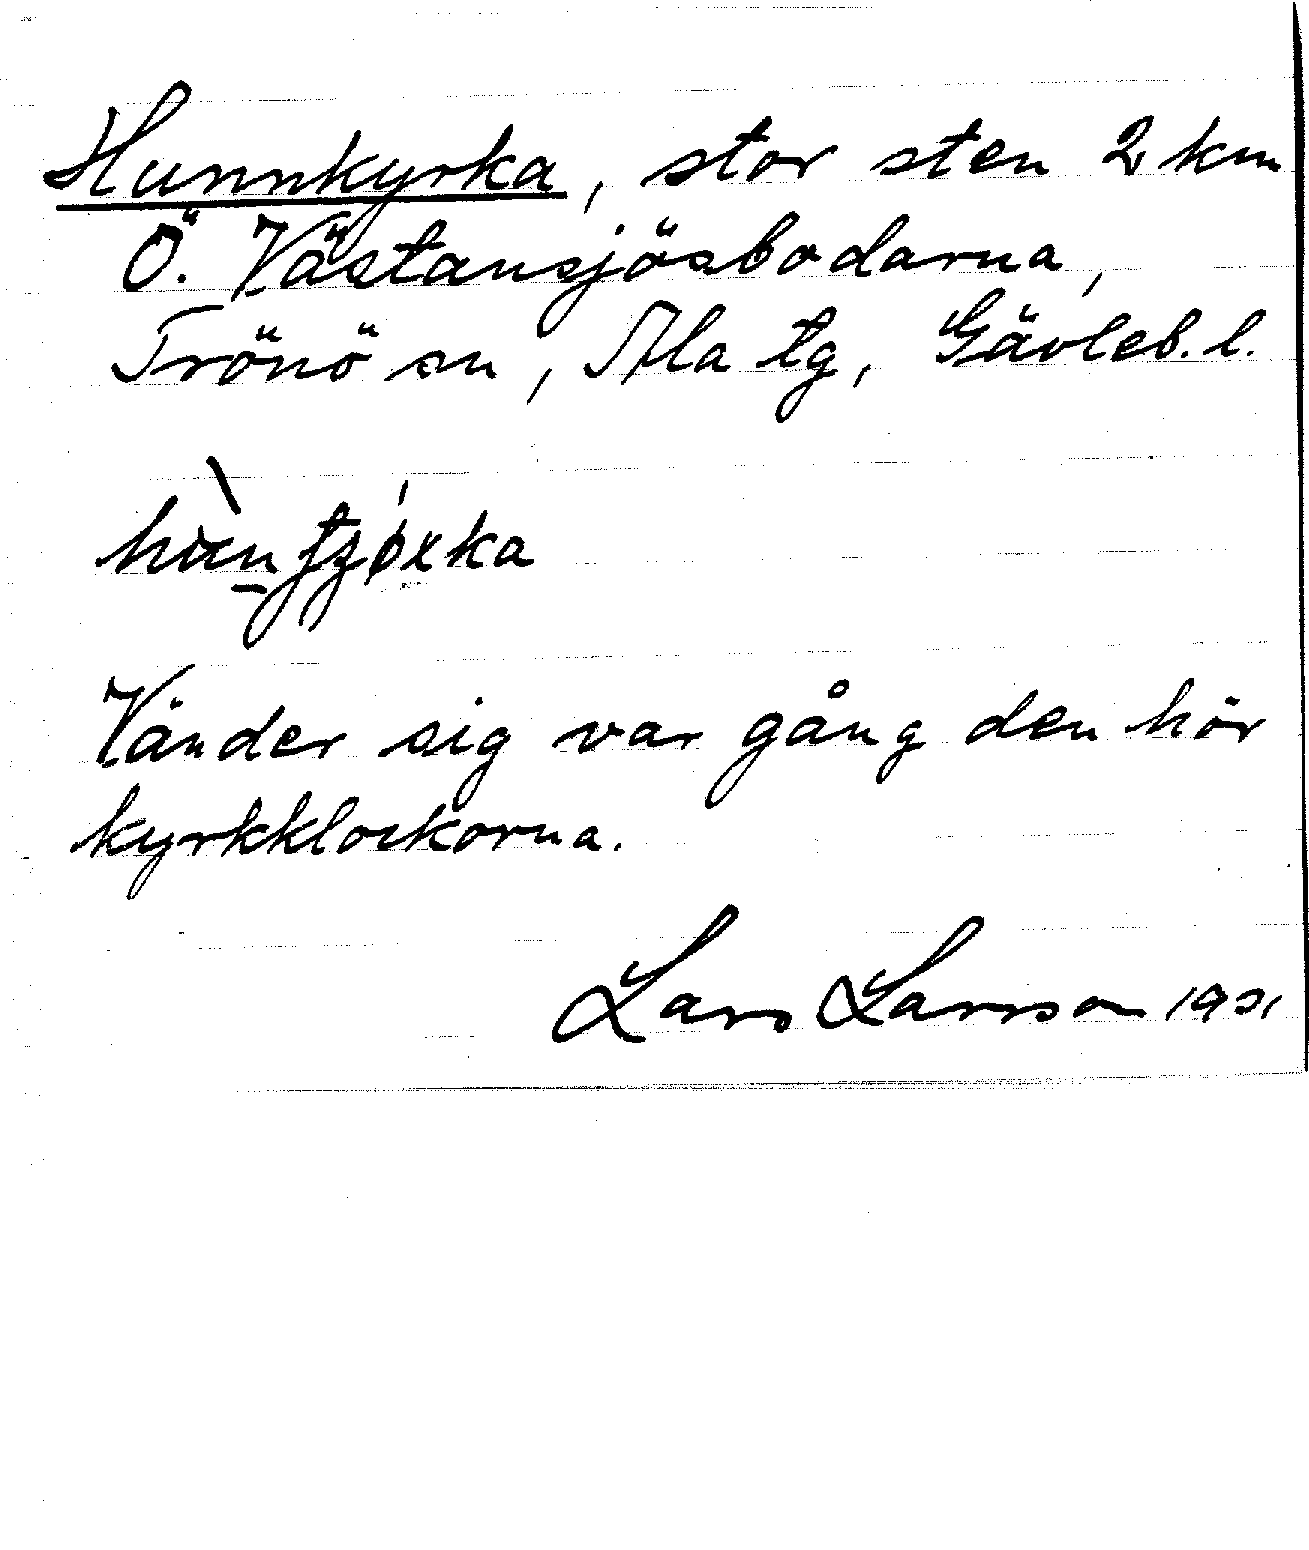 Hunnkyrka, stor sten 2 km
Ö. Västansjösbodarna,
Trönö sn, Ala tg, Gävleb. l.
Vänder sig var gång den hör
kyrkklockorna.
Lars Larsson